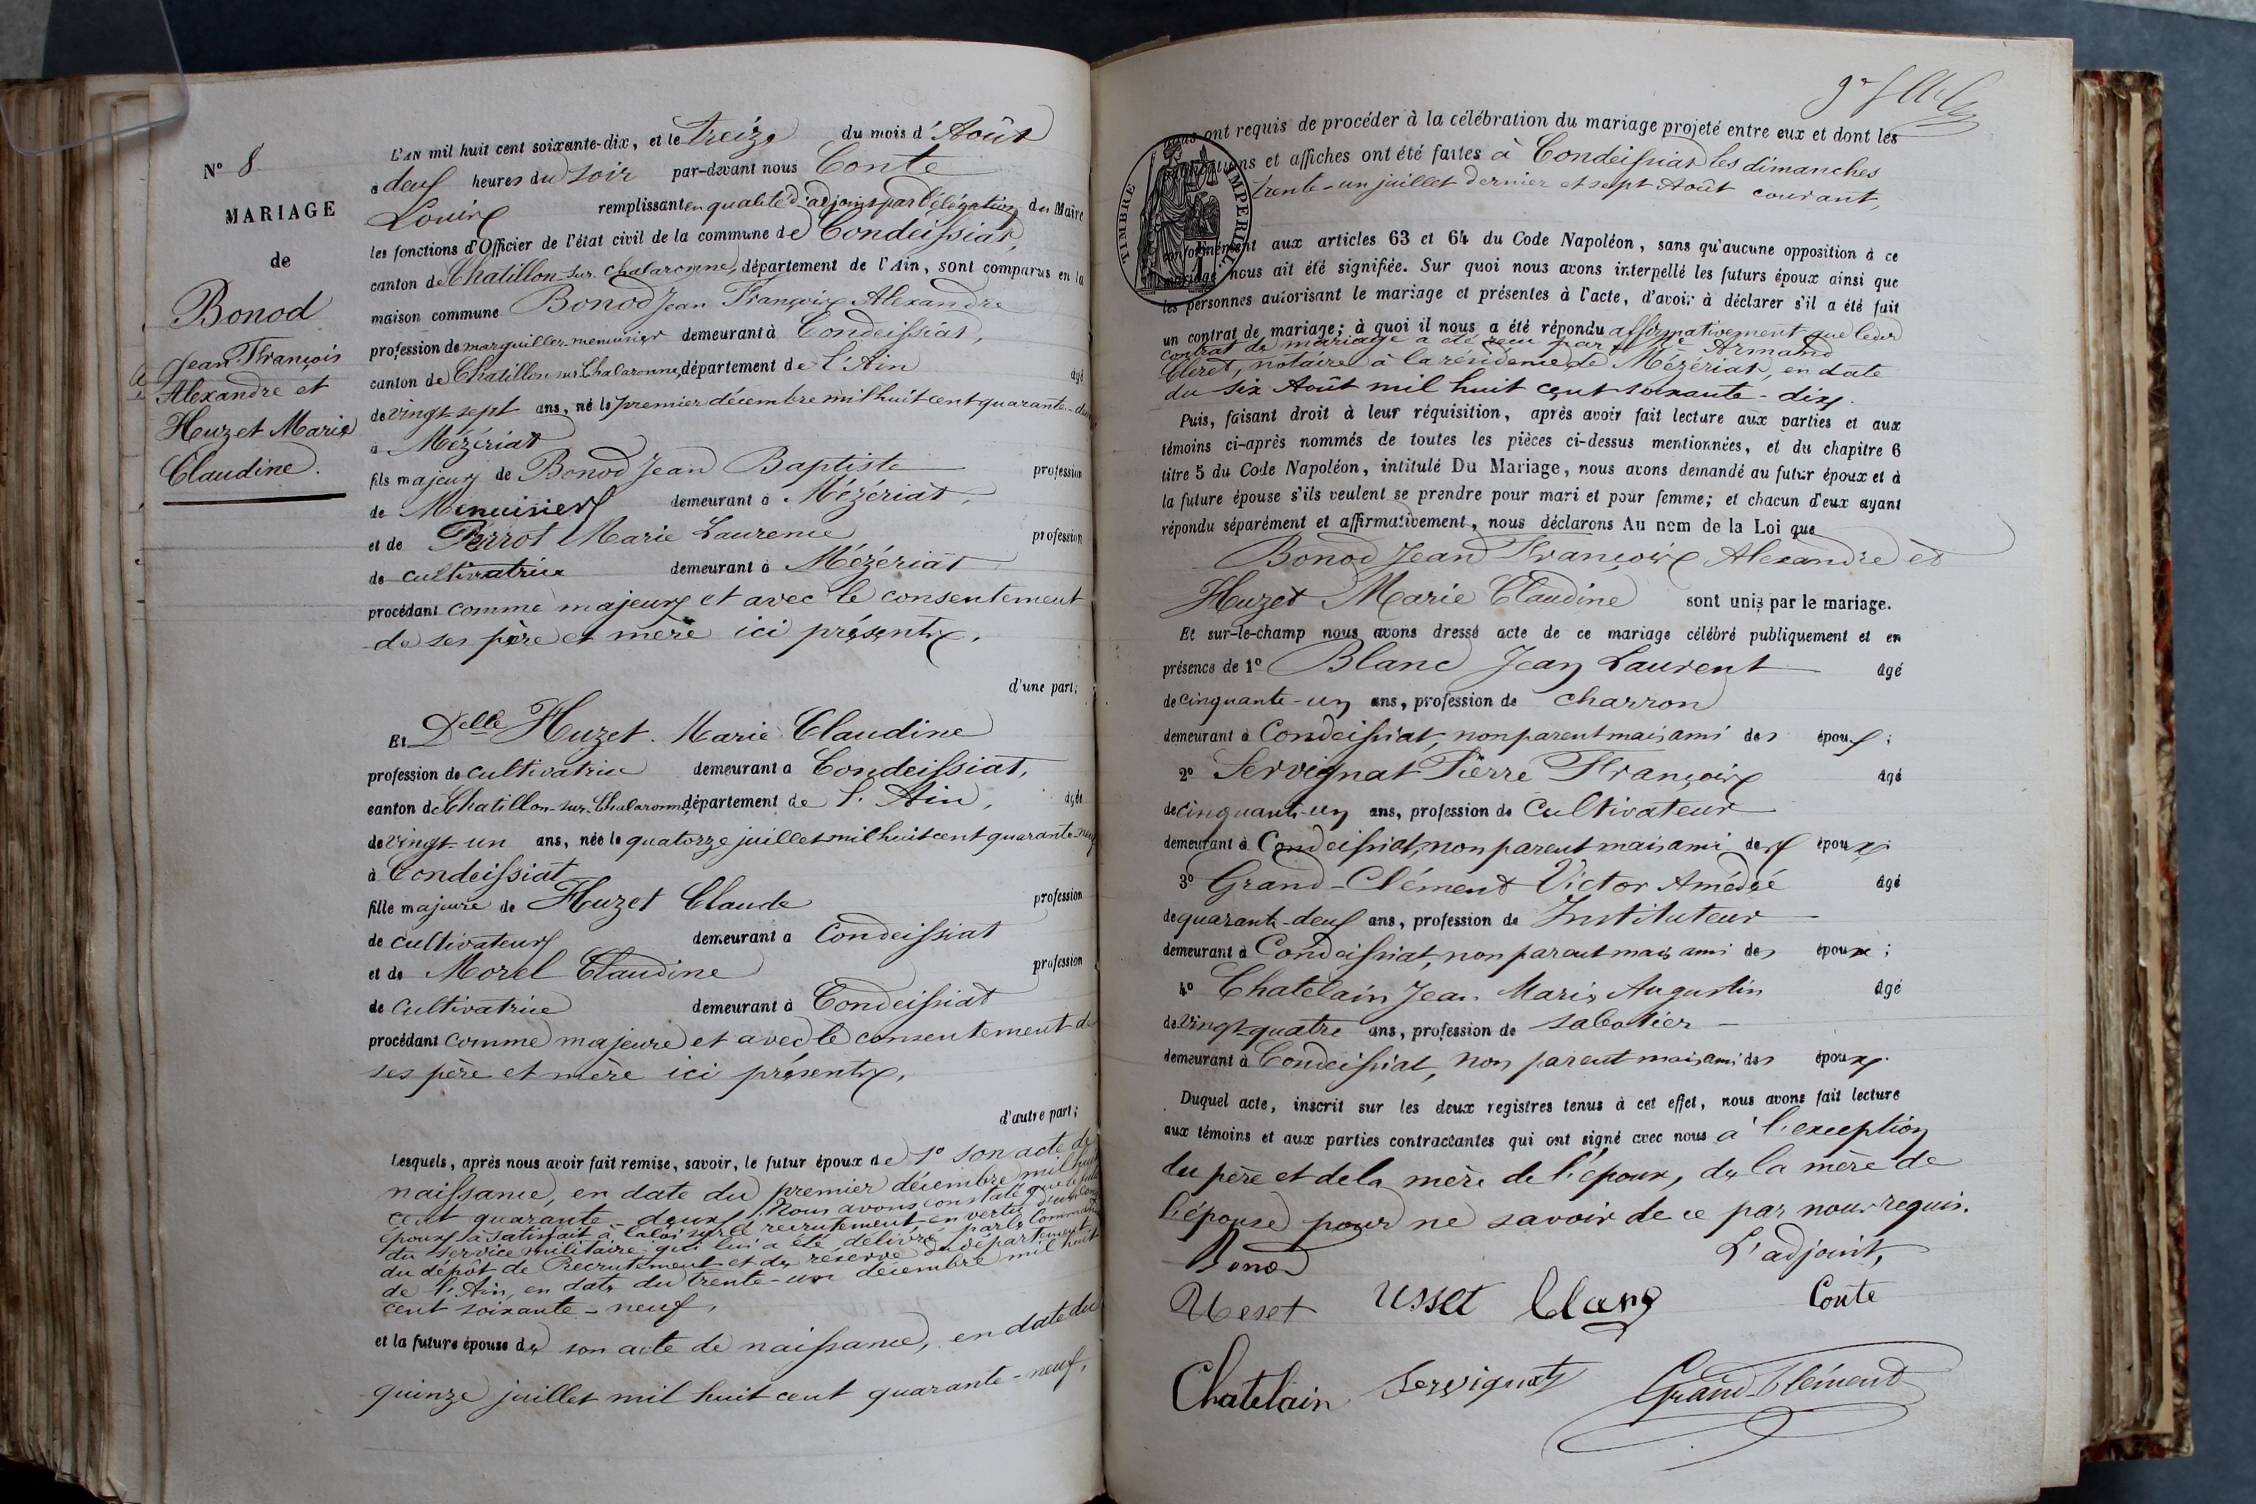 N° 8
MARIAGE
de
Bonod
Jean François
Alexandre et
Huzet Marie
Claudine.
L'AN mil huit cent soixante-dix, et le treize du mois d'Août
a deux heures du soir par-devant nous Conte
Louis remplissant en qualité d'adjoint par délégation du Maire
les fonctions d'Officier de l'état civil de la commune de Condeissiat,
canton de Chatillon-sur-Chalaronne, département de l'Ain, sont comparus en la
maison commune Bonod Jean François Alexandre
profession de marguiller-menuisier demeurant à Condeissiat,
canton de Chatillon-sur-Chalaronne, département de l'Ain âgé
de vingt-sept ans, né le premier décembre mil huit cent quarante-deux
à Mézériat
fils majeur de Bonod Jean Baptiste profession
de Menuisier demeurant à Mézériat,
et de Perrot Marie Laurence profession
de cultivatrice demeurant à Mézériat
procédant comme majeur et avec le consentement
de ses père et mère ici présents,
d'une part;
Et Delle Huzet Marie Claudine
profession de cultivatrice demeurant a Condeissiat,
canton de Chatillon-sur-Chalaronne, département de l'Ain, âgée
de vingt-un ans, née le quatorze juillet mil huit cent quarante-neuf
à Condeissiat
fille majeure de Huzet Claude profession
de cultivateur demeurant a Condeissiat
et de Morel Claudine profession
de cultivatrice demeurant à Condeissiat
procédant comme majeure et avec le consentement de
ses père et mère ici présents,
d'autre part;
Lesquels, après nous avoir fait remise, savoir, le futur époux de 1° son acte de
naissance, en date du premier décembre mil huit
cent quarante-deux. Nous avons constaté que le futur
époux a satisfait à la loi sur le recrutement en vertu d'un congé
du service militaire qui lui a été délivré par le Commandant
du dépôt de Recrutement et de réserve du département
de l'Ain, en date du trente-un décembre mil huit
cent soixante-neuf,
et la future épouse de son acte de naissance, en date du
quinze juillet mil huit cent quarante-neuf,
TIMBRE IMPERIAL
nous ont requis de procéder à la célébration du mariage projeté entre eux et dont les
publications et affiches ont été faites à Condeissiat les dimanches
trente-un juillet dernier et sept Août courant,
conformément aux articles 63 et 64 du Code Napoléon, sans qu'aucune opposition à ce
mariage nous ait été signifiée. Sur quoi nous avons interpellé les futurs époux ainsi que
les personnes autorisant le mariage et présentes à l'acte, d'avoir à déclarer s'il a été fait
un contrat de mariage; à quoi il nous a été répondu affirmativement que leur
contrat de mariage a été reçu par Me Armand
notaire à la résidence de Mézériat, en date
du six Août mil huit cent soixante-dix.
Puis, faisant droit à leur réquisition, après avoir fait lecture aux parties et aux
témoins ci-après nommés de toutes les pièces ci-dessus mentionnées, et du chapitre 6
titre 5 du Code Napoléon, intitulé Du Mariage, nous avons demandé au futur époux et à
la future épouse s'ils veulent se prendre pour mari et pour femme; et chacun d'eux ayant
répondu séparément et affirmativement, nous déclarons Au nom de la Loi que
Bonod Jean François Alexandre et
Huzet Marie Claudine sont unis par le mariage.
Et sur-le-champ nous avons dressé acte de ce mariage célébré publiquement et en
présence de 1° Blanc Jean Laurent âgé
de cinquante-un ans, profession de charron
demeurant à Condeissiat, non parent mais ami des époux;
2° Servignat Pierre François âgé
de cinquante-un ans, profession de Cultivateur
demeurant à Condeissiat, non parent mais ami des époux;
3° Grand-Clément Victor Amédée âgé
de quarante-deux ans, profession de Instituteur
demeurant à Condeissiat, non parent mais ami des époux;
4° Chatelain Jean Marie Augustin âgé
de vingt-quatre ans, profession de sabotier
demeurant à Condeissiat, non parent mais ami des époux.
Duquel acte, inscrit sur les deux registres tenus à cet effet, nous avons fait lecture
aux témoins et aux parties contractantes qui ont signé avec nous à l'exception
du père et de la mère de l'époux, de la mère de
l'épouse pour ne savoir de ce par nous requis.
Bonod L'adjoint,
Useset Usset Blanc Conte
Chatelain Servignat Grand-Clément